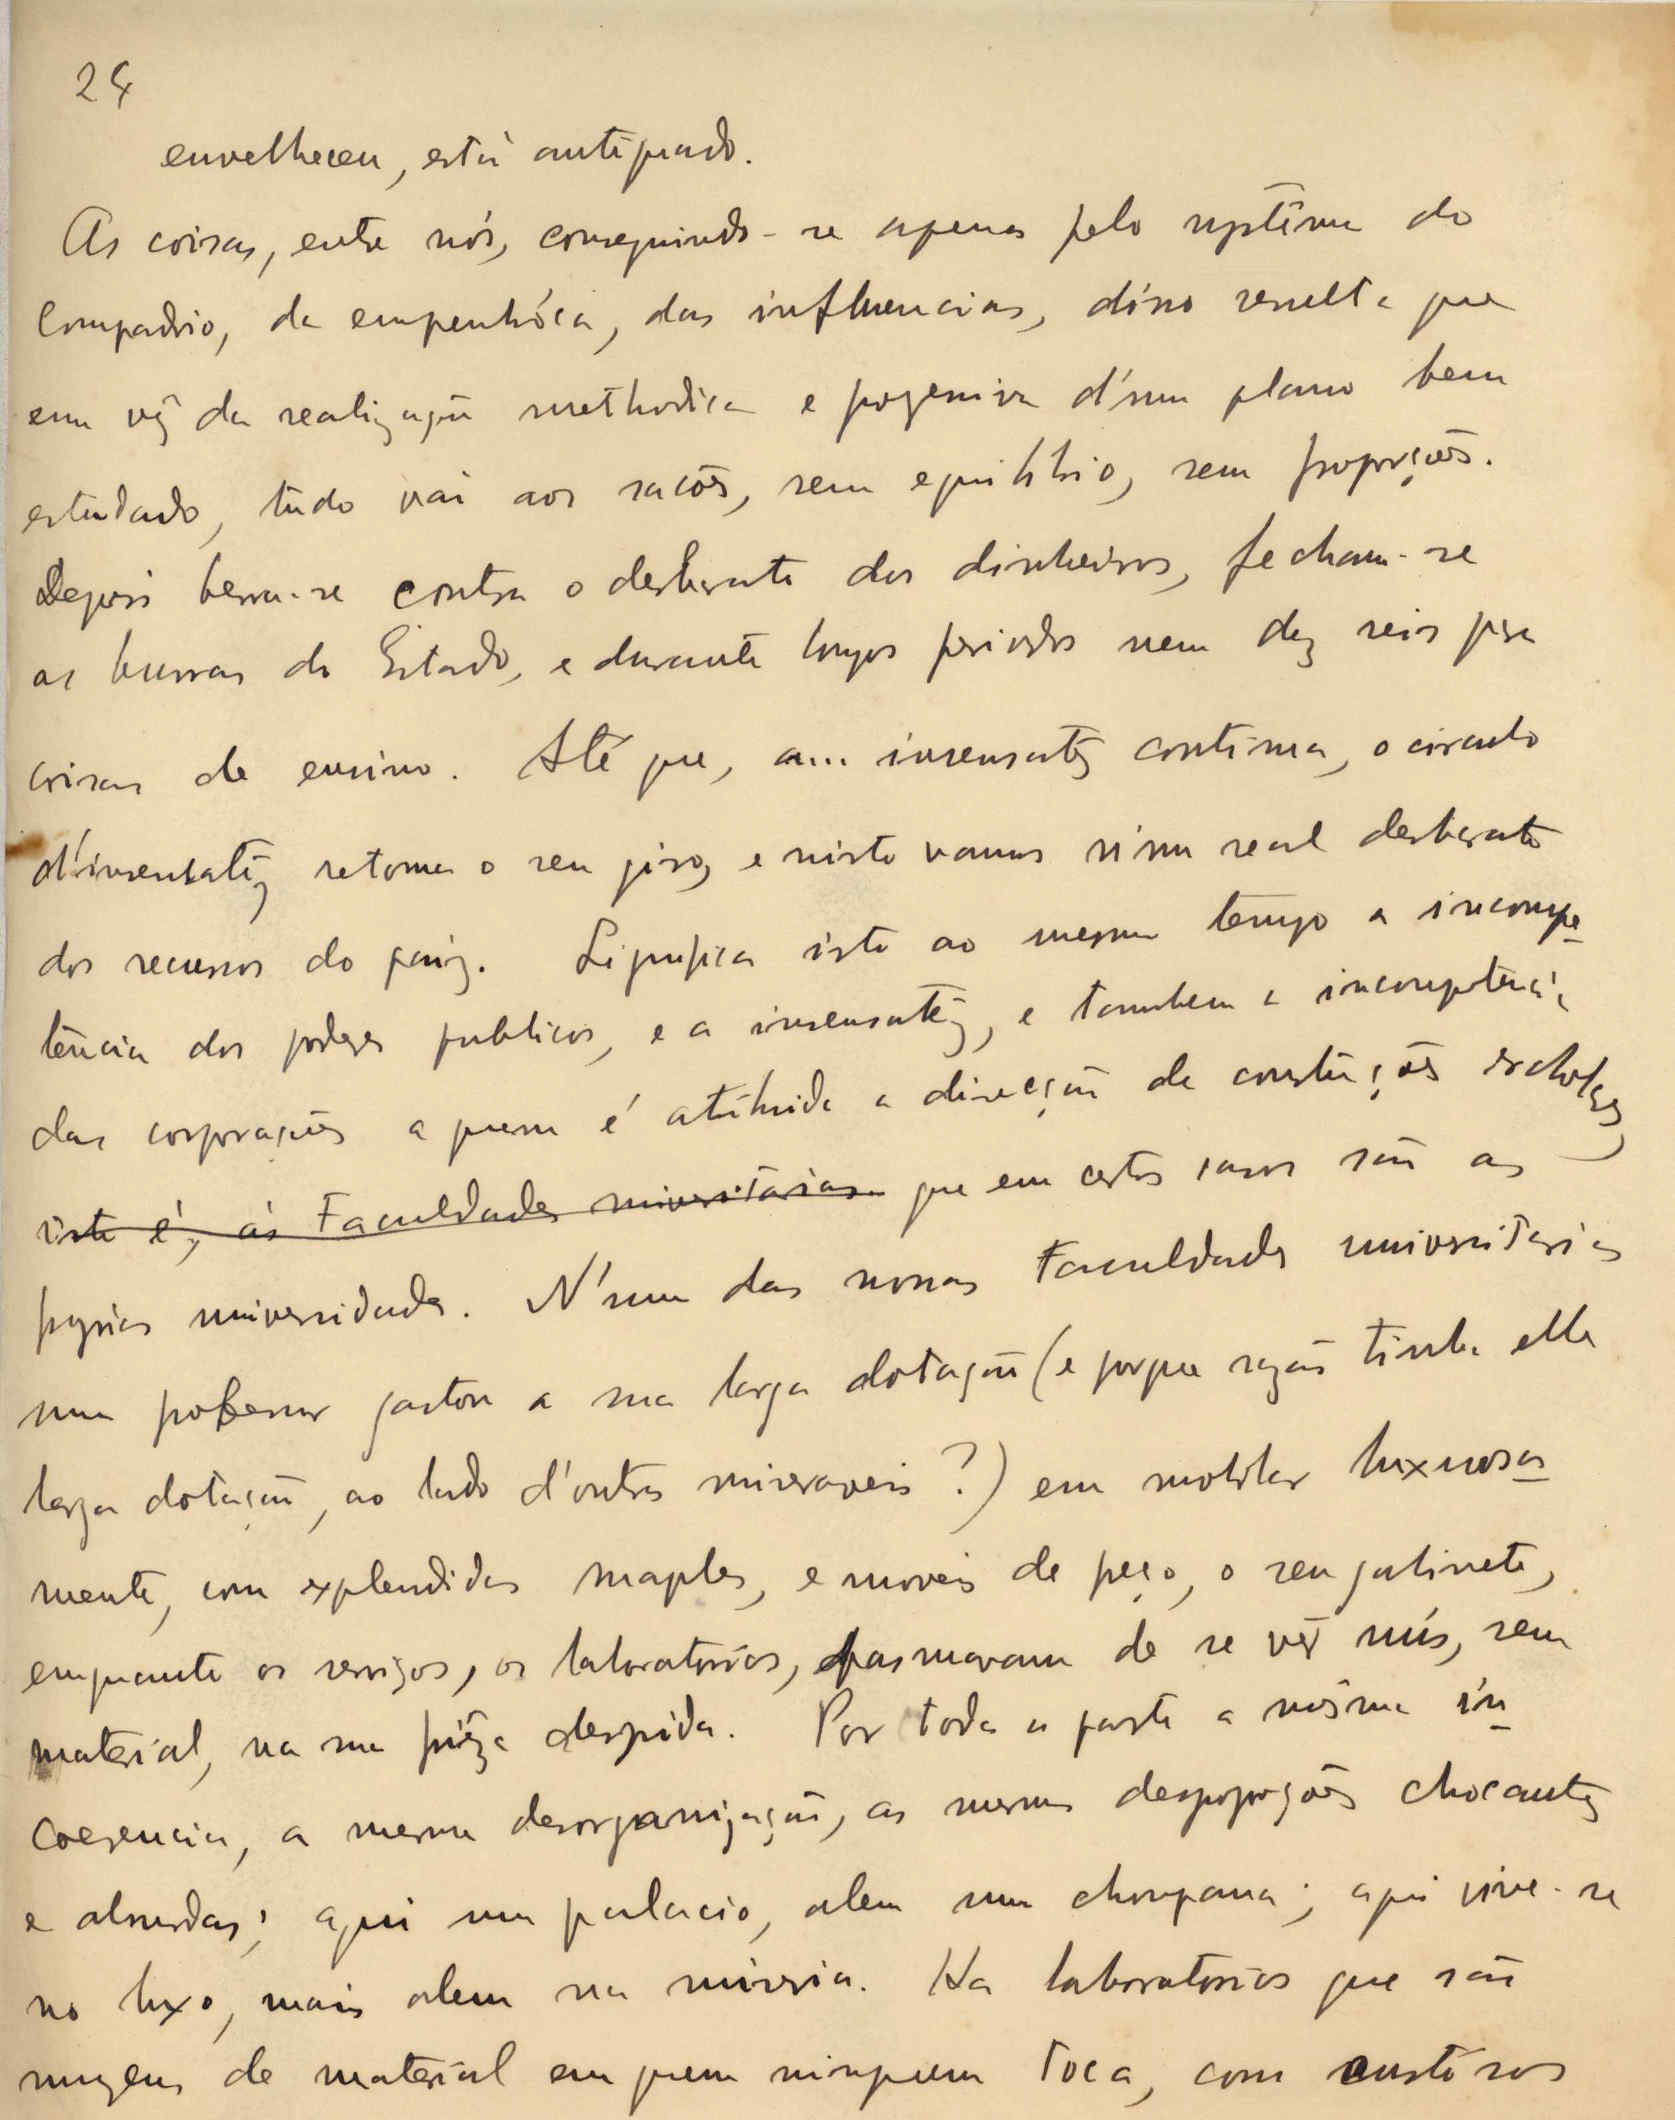 24
envelheceu, está antiquado.
As coisas, entre nós, conseguindo-se apenas pelo systêma do
compadrio, da empenhóca, das influencias, disso resulta que
em vêz da realização methodica e progressiva d'um plano bem
estudado, tudo vai aos sacões, sem equilibrio, sem proporções.
Depois berra-se contra o desbarato dos dinheiros, fecham-se
as burras do Estado, e durante longos periodos nem dez reis para
coisas de ensino. Até que, a... insensatêz continua, o circulo
d'insensatêz retoma o seu giro, e nisto vamos n'um real desbarato
dos recursos do paiz. Significa isto ao mesmo tempo a incompe-
tência dos poderes publicos, e a insensatêz, e tambem a incompetência
das corporações a quem é atribuida a direcção de construções escholares,
isto é, ás Faculdades universitarias que em certos casos são as
proprias universidades. N'uma das nossas Faculdades universitarias
um professor gastou a sua larga dotação (e porque razão tinha elle
larga dotação, ao lado d'outras miseraveis?) em mobilar luxuosa-
mente, com explendidos maples, e moveis de preço, o seu gabinete,
emquanto os serviços, os laboratorios, pasmavam de se vêr nús, sem
material, na sua priêza despida. Por toda a parte a mesma in-
coerencia, a mesma desorganização, as mesmas desproporções chocantes
e absurdas; aqui um palacio, alem uma choupana; aqui vive-se
no luxo, mais alem na miseria. Ha laboratorios que são
museus de material em quem ninguem toca, com custosos